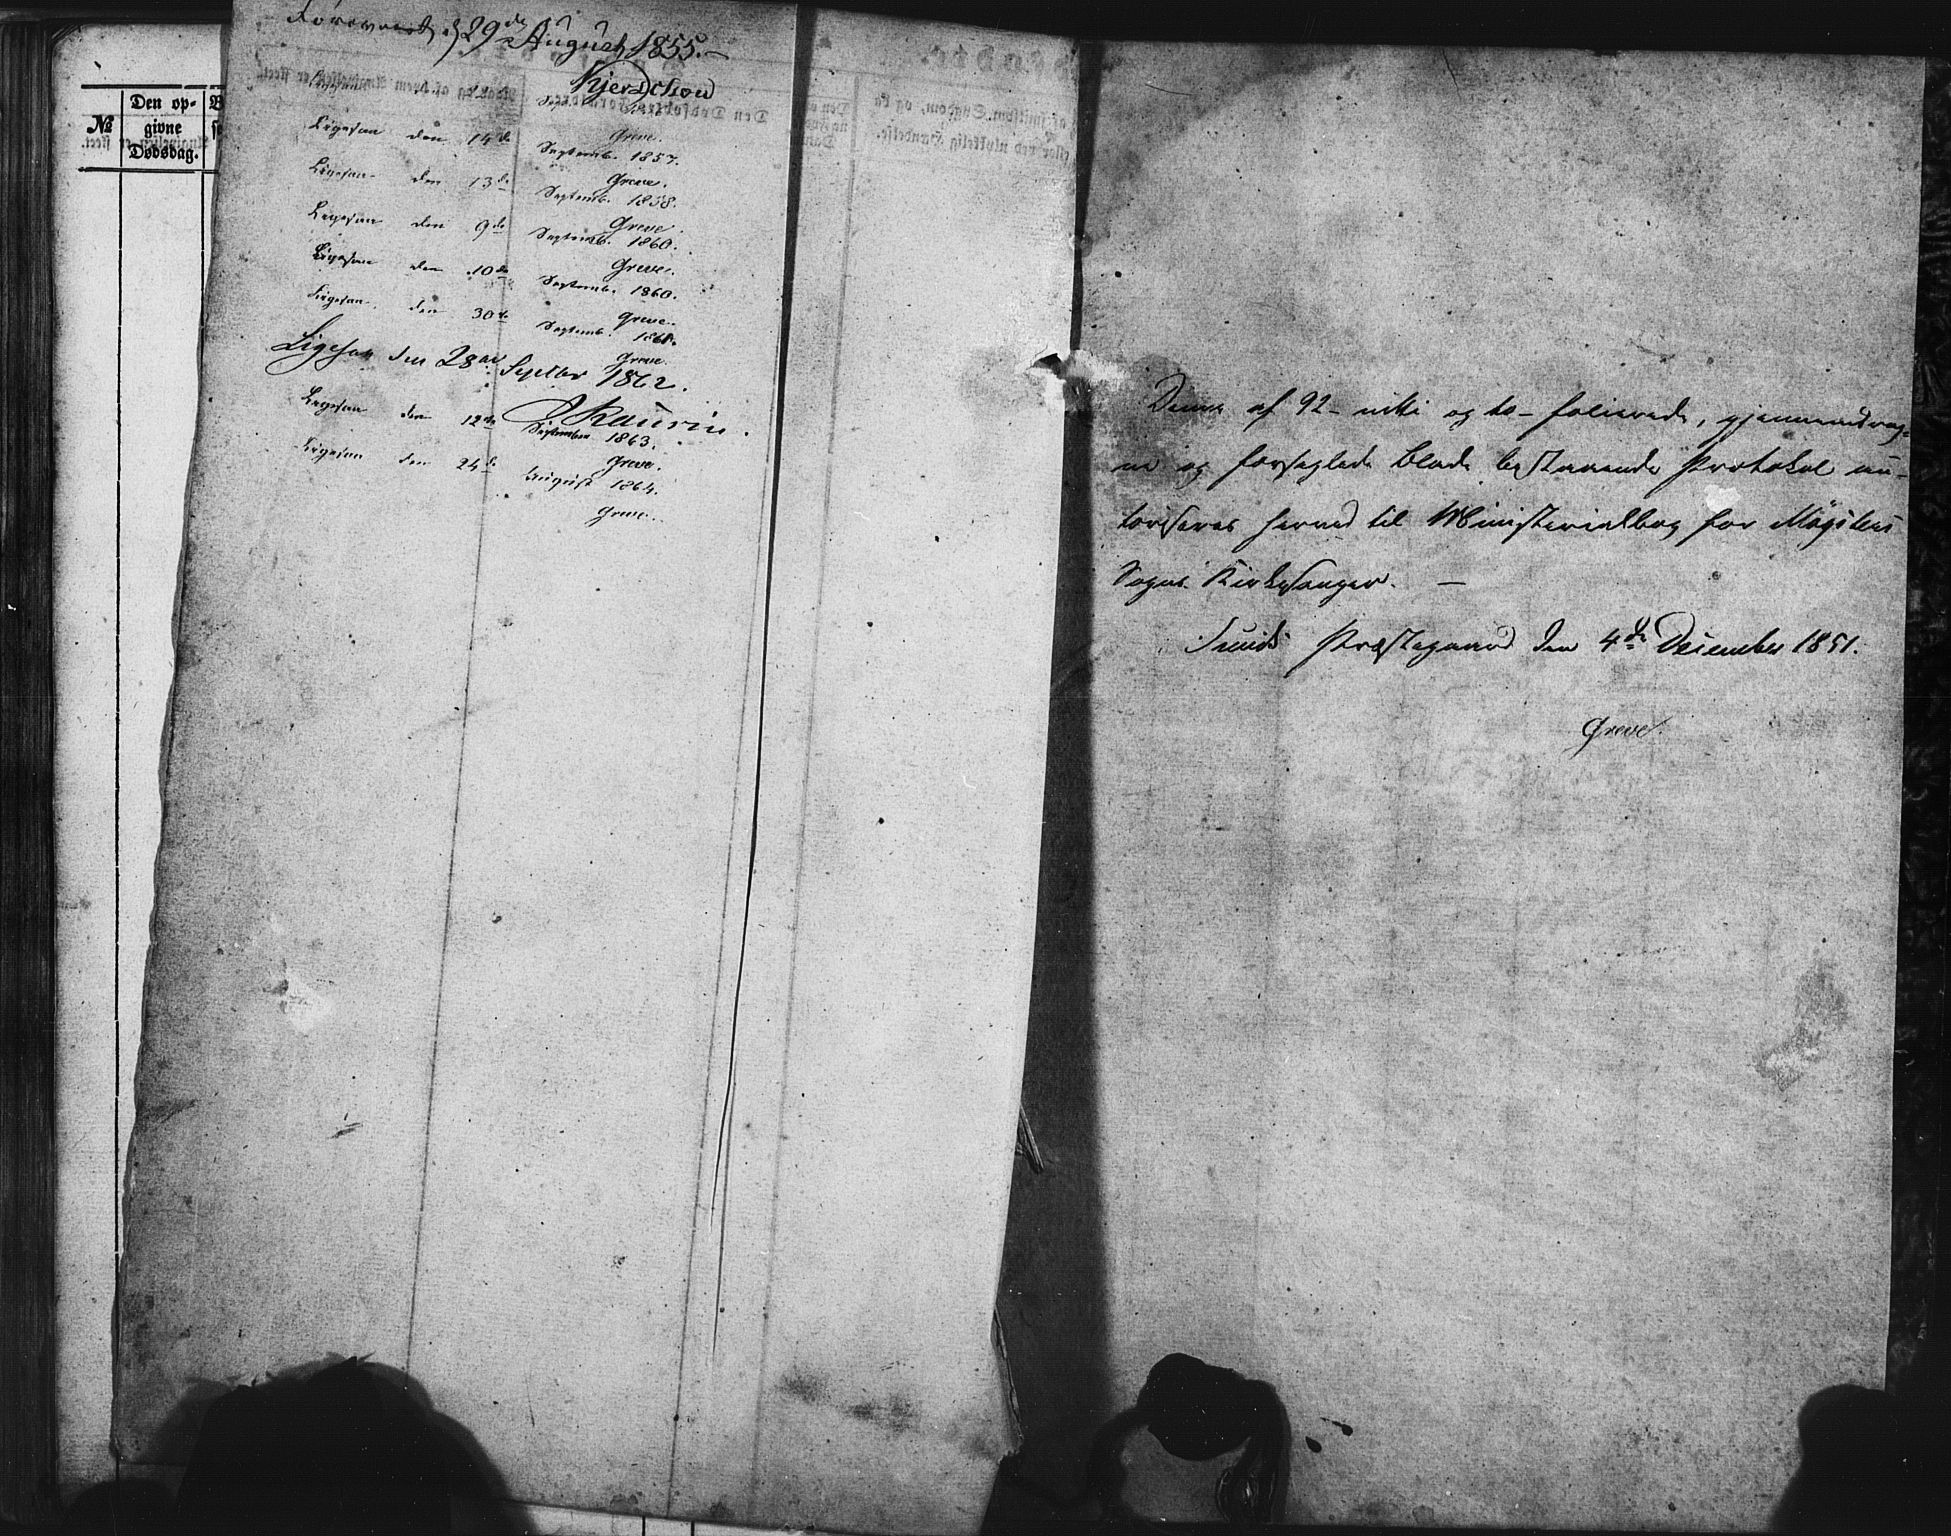 №
Den op-
givne
Dødsdag.
Forevist d 29de August 1855.
Kjerschow
Greve.
Ligesaa den 14de Septemb. 1857.
Greve.
Ligesaa den 13de Septemb. 1858.
Greve.
Ligesaa den 9de Septemb. 1860.
Greve.
Ligesaa den 10de Septemb. 1860.
Greve.
Ligesaa den 30te Septemb.
Greve.
Ligesaa den 28de Septbr 1862.
Kaurin.
Ligesaa den 12te September 1863.
Greve.
Ligesaa den 24de August 1864.
Greve.
Denne af 92 - nitti og to - folierede, gjennemdrag-
ne og forseglede Blade bestaaende Protokol au-
toriseres herved til Ministerialbog for Møgsters
Sogns Kirkesanger. —
Sunds Præstegaard den 4de December 1851.
Greve.